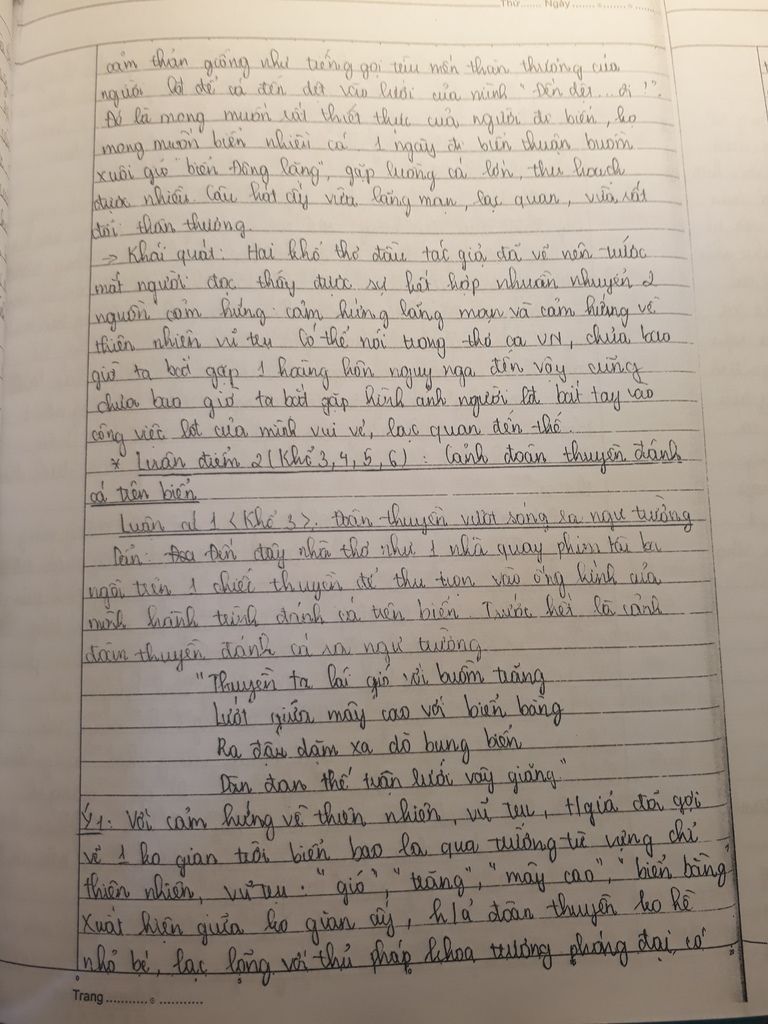 Thứ....... Ngày ....................
cảm thán giống như tiếng gọi trìu mến thân thương của
người lđ để cá đến dệt vào lưới của mình "Đến dệt... ơi!".
Đó là mong muốn rất thiết thực của người đi biển, họ
mong muốn biển nhiều cá 1 ngày đi biển thuận buồm
xuôi gió "biển Đông lặng", gặp luồng cá lớn, thu hoạch
được nhiều. Câu hát ấy vừa lãng mạn, lạc quan, vừa rất
đỗi thân thương.
→ Khái quát: Hai khổ thơ đầu tác giả đã vẽ nên trước
mắt người đọc thấy được sự kết hợp nhuần nhuyễn 2
nguồn cảm hứng: cảm hứng lãng mạn và cảm hứng về
thiên nhiên vũ trụ. Có thể nói trong thơ ca VN, chưa bao
giờ ta bắt gặp 1 hoàng hôn nguy nga đến vậy cũng
chưa bao giờ ta bắt gặp hình ảnh người lđ bắt tay vào
công việc lđ của mình vui vẻ, lạc quan đến thế.
* Luận điểm 2 (Khổ 3, 4, 5, 6): Cảnh đoàn thuyền đánh
cá trên biển
Luận cứ 1 <Khổ 3>: Đoàn thuyền vượt sóng ra ngư trường
Dẫn: Đến đây nhà thơ như 1 nhà quay phim tài ba
ngồi trên 1 chiếc thuyền để thu trọn vào ống kính của
mình hành trình đánh cá trên biển. Trước hết là cảnh
đoàn thuyền đánh cá ra ngư trường
"Thuyền ta lái gió với buồm trăng
Lướt giữa mây cao với biển bằng
Ra đậu dặm xa dò bụng biển
Dàn đan thế trận lưới vây giăng"
Ý1: Với cảm hứng về thiên nhiên, vũ trụ, t/giả đã gợi
về 1 ko gian trời biển bao la qua trường từ vựng chỉ
thiên nhiên, vũ trụ: "gió", "trăng", "mây cao", "biển bằng"
Xuất hiện giữa ko gian ấy, h/ả đoàn thuyền ko hề
nhỏ bé, lạc lõng với thủ pháp khoa trương phóng đại có
Trang ......................